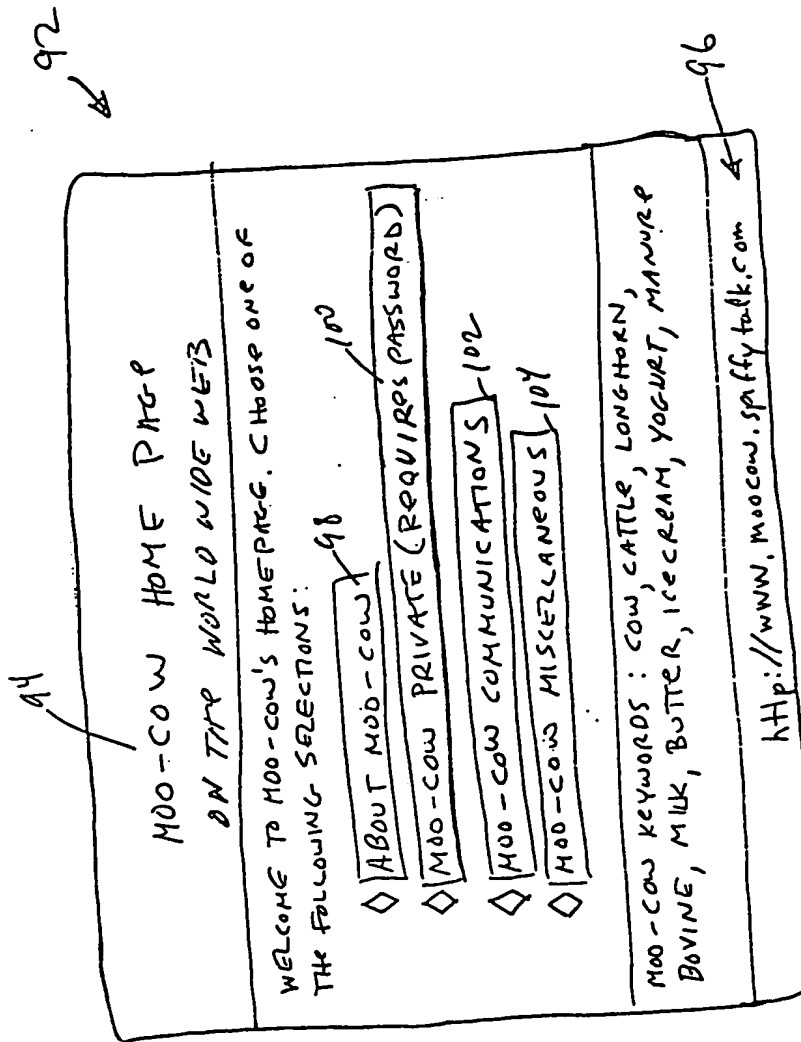 92
94
MOO-COW HOME PAGE
ON THE WORLD WIDE WEB
WELCOME TO MOO-COW'S HOMEPAGE. CHOOSE ONE OF
THE FOLLOWING SELECTIONS:
◇ ABOUT MOO-COW 98
◇ MOO-COW PRIVATE (REQUIRES PASSWORD) 100
◇ MOO-COW COMMUNICATIONS 102
◇ MOO-COW MISCELLANEOUS 104
MOO-COW KEYWORDS: COW, CATTLE, LONGHORN,
BOVINE, MILK, BUTTER, ICECREAM, YOGURT, MANURE
http://www.moocow.spiffytalk.com 96